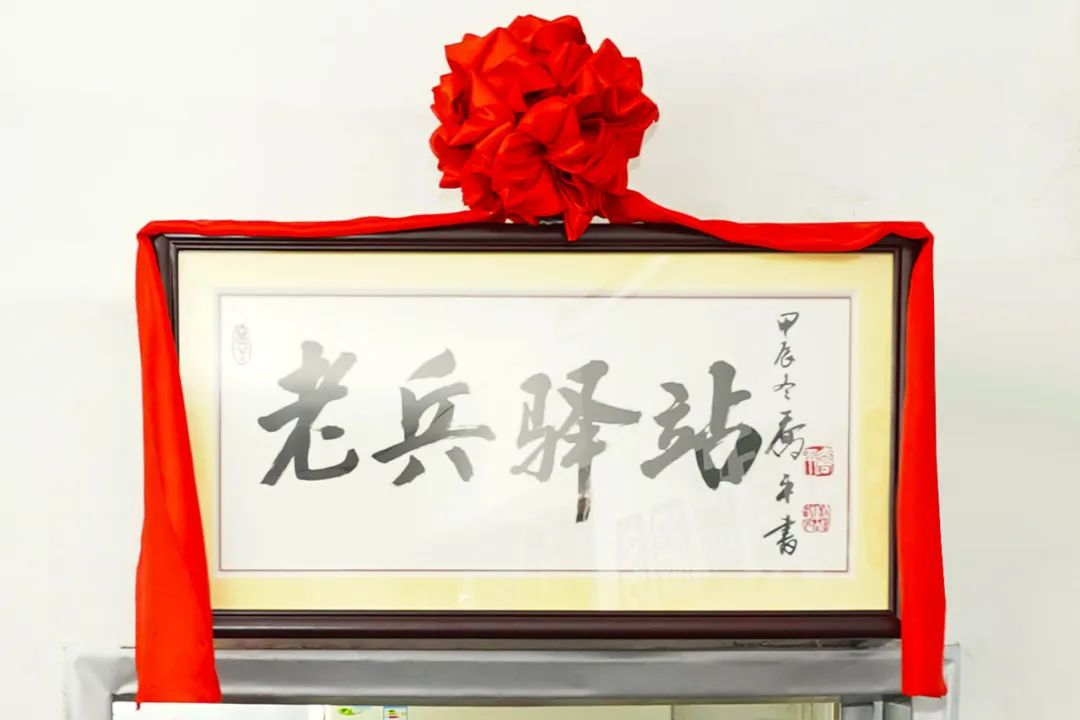 老兵驿站
甲辰冬乔平书